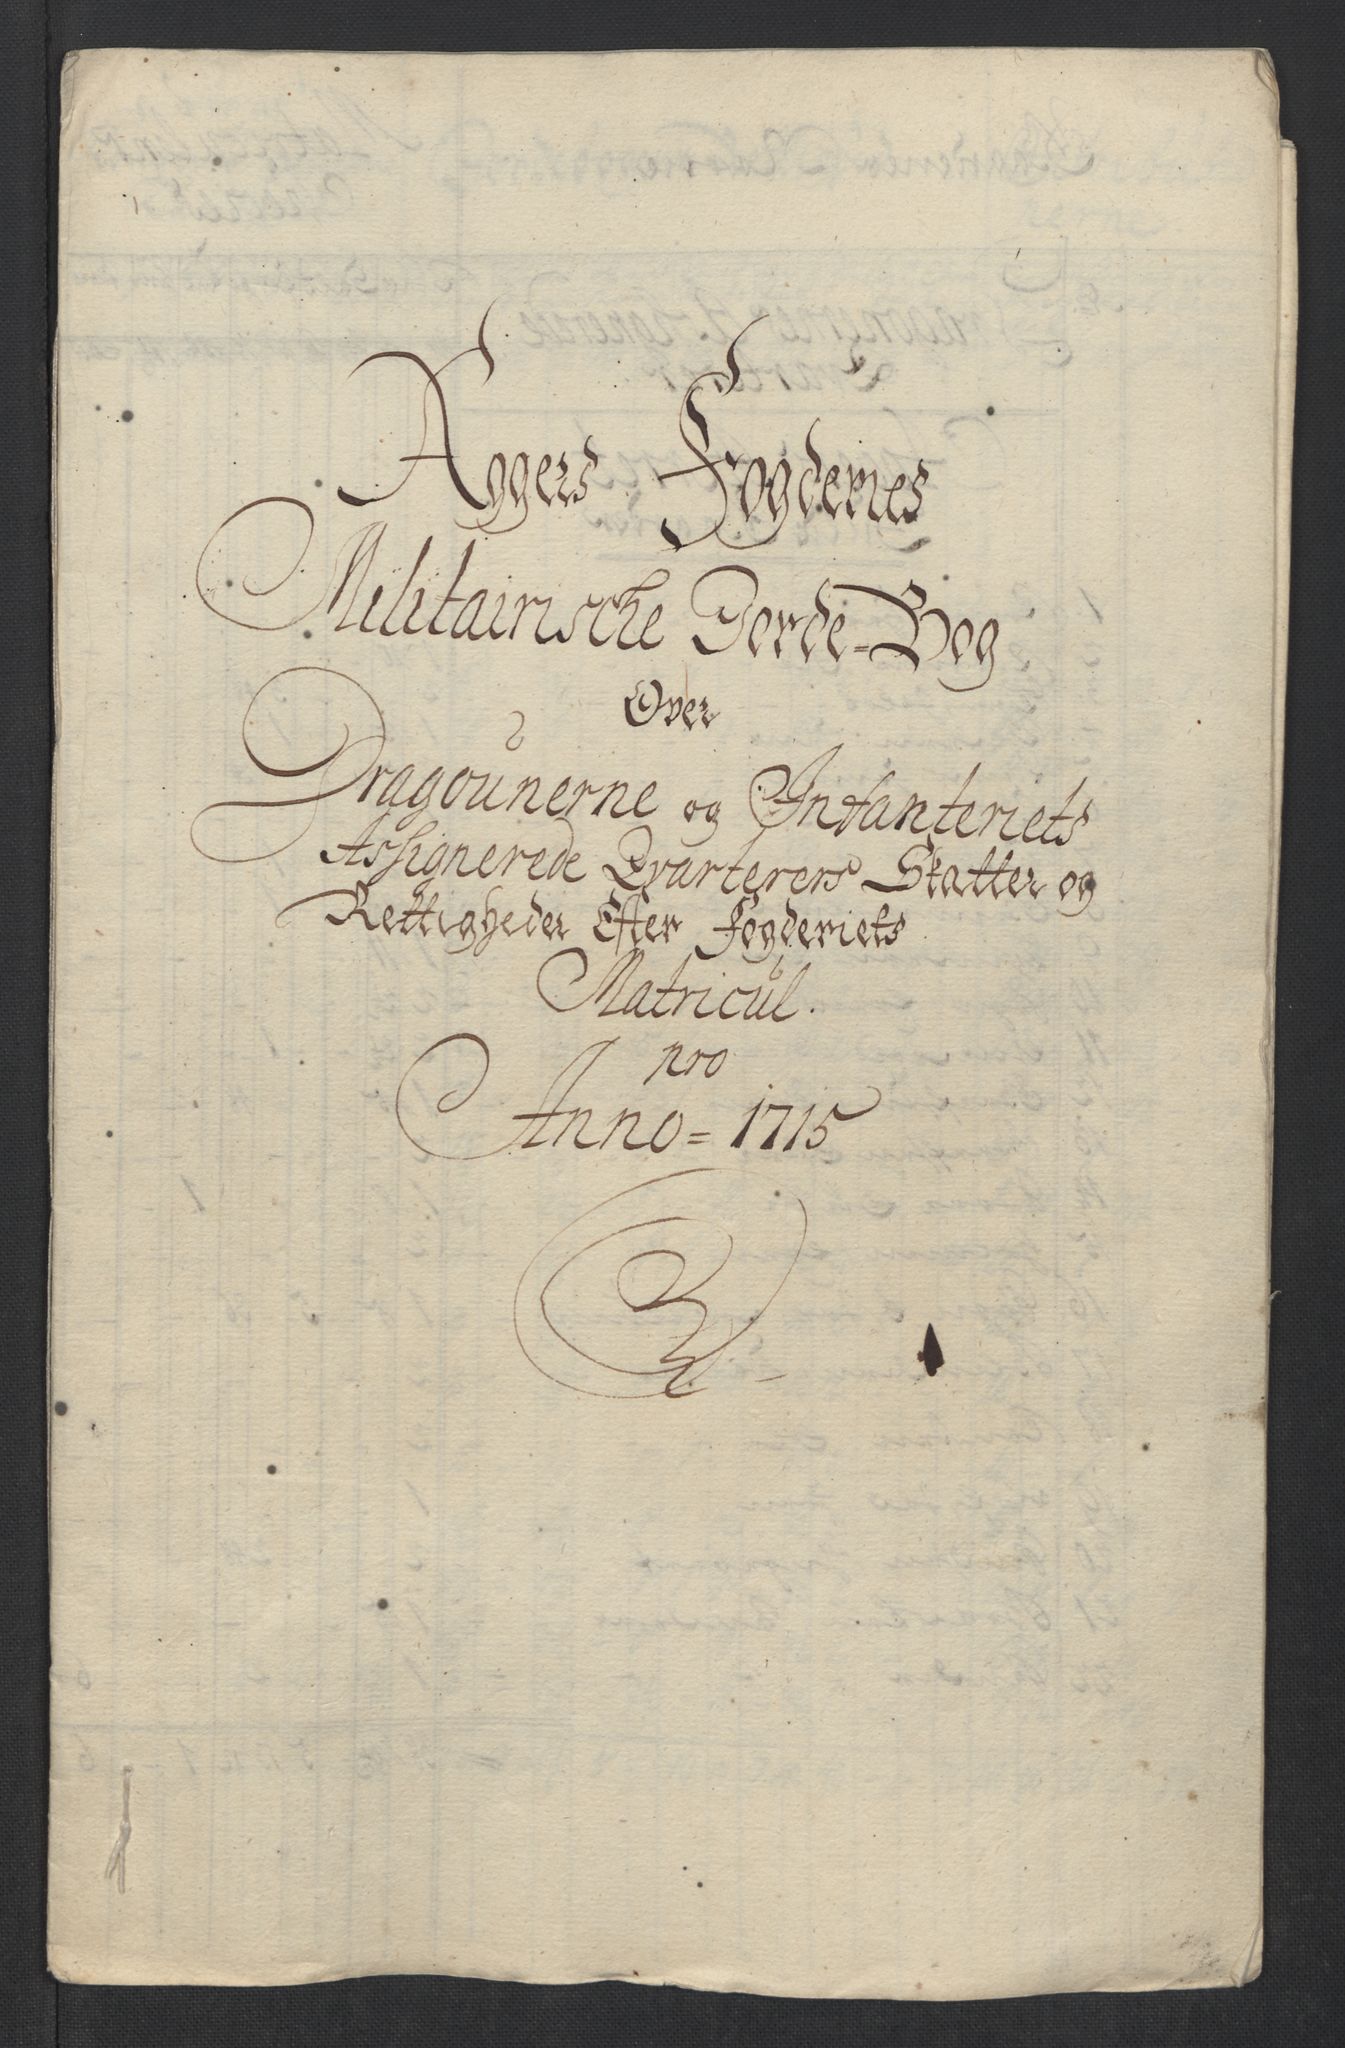 Aggers Fogderies
Militairische Jorde-Bog
Over
Dragounerne og Infanteriets
Assignerede Qvarterers Skatter og
Rettigheder Efter Fogderiets
Matricul.
pro
Anno = 1715